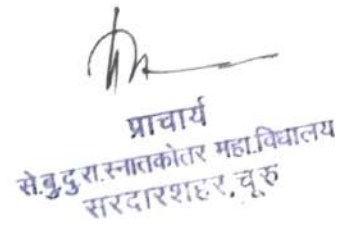 प्राचार्य
से.बु.दु.रा.स्नातकोतर महा.विधालय
सरदारशहर, चूरु